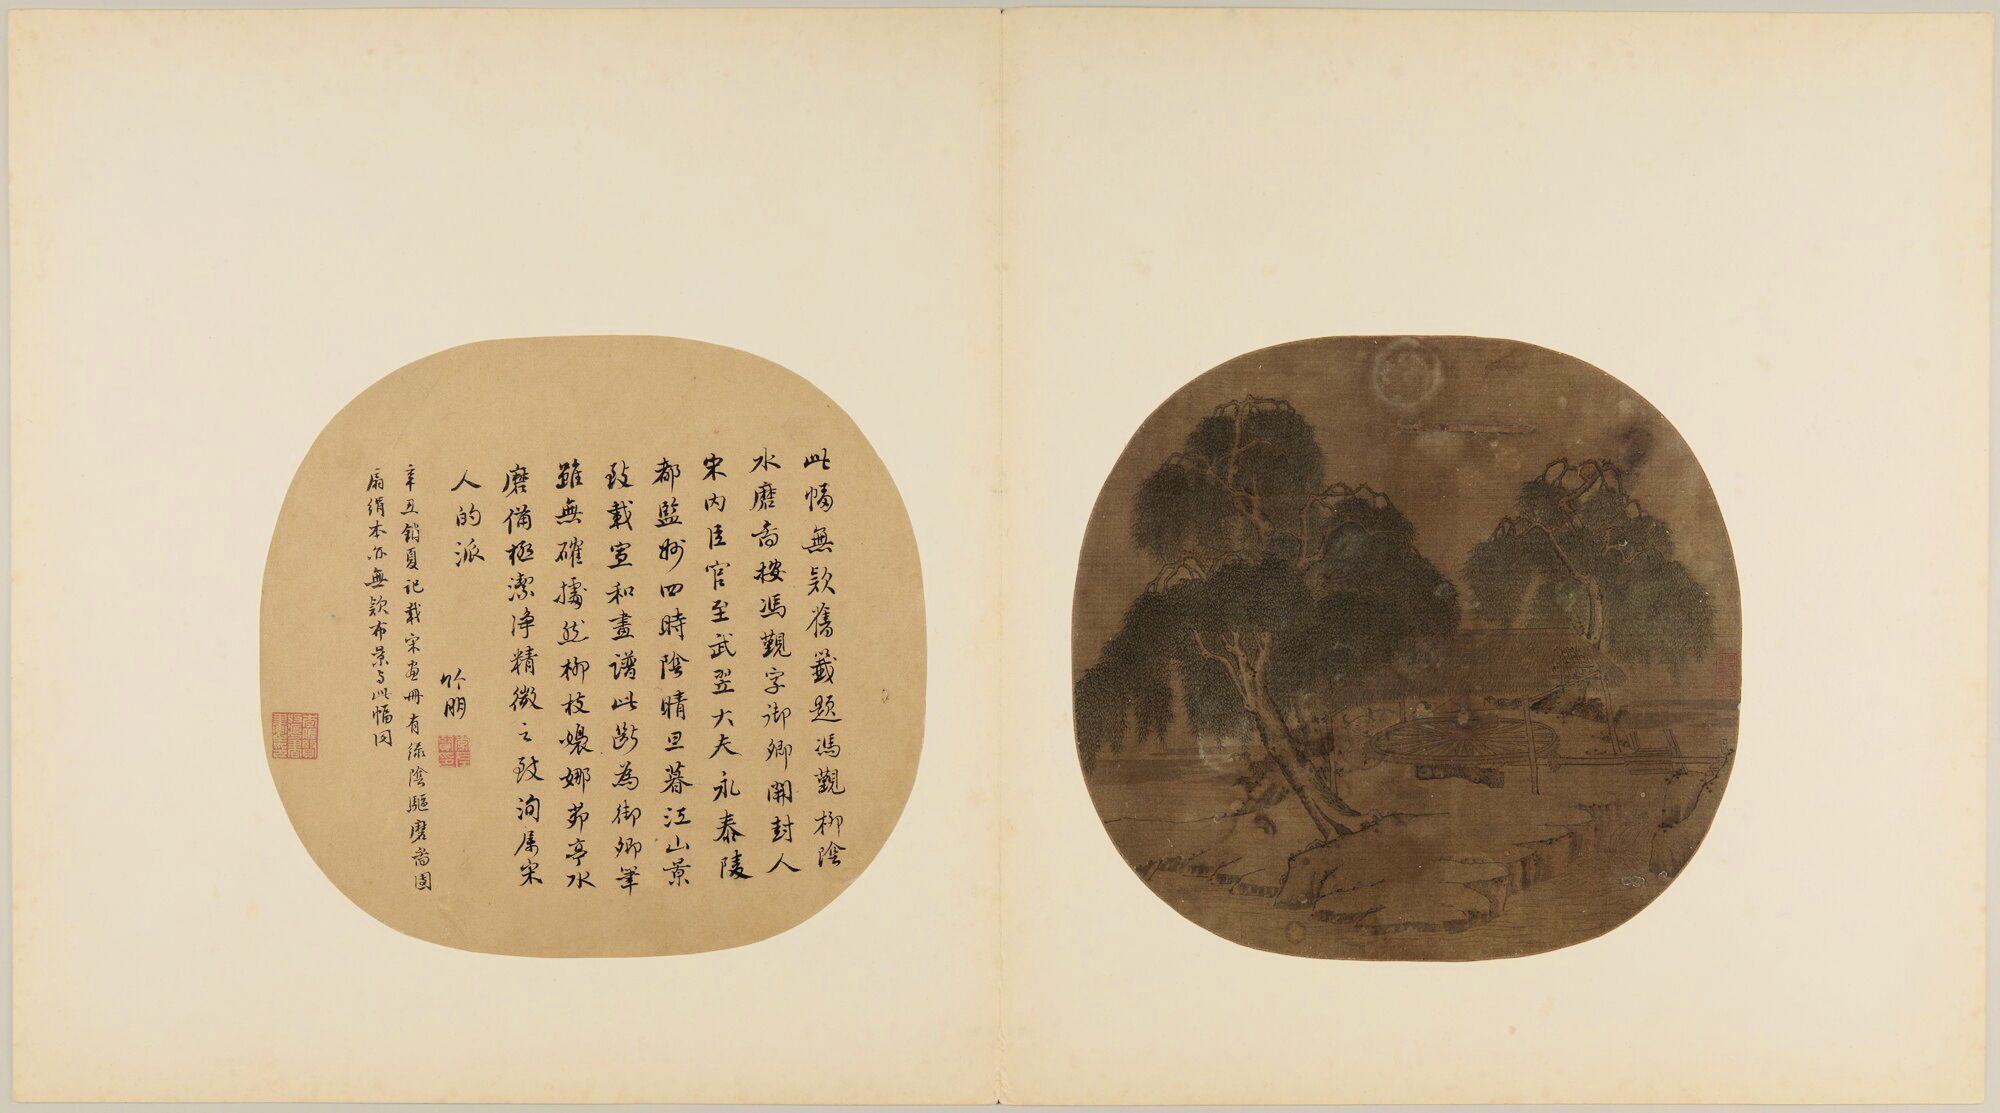 此幅無款舊籤題馮覲柳陰
水磨啚按馮覲字御卿開封人
宋內臣官至武翌大夫永泰陵
都監妙四時陰晴旦暮江山景
致載宣和畫譜此斷為御卿筆
雖無確據然柳枝嬝娜茆亭水
磨備極潔淨精微之致洵屬宋
人的派
竹朋
辛丑銷夏記載宋畫冊有綠陰驅磨啚團
扇絹本亦無款布景與此幅同